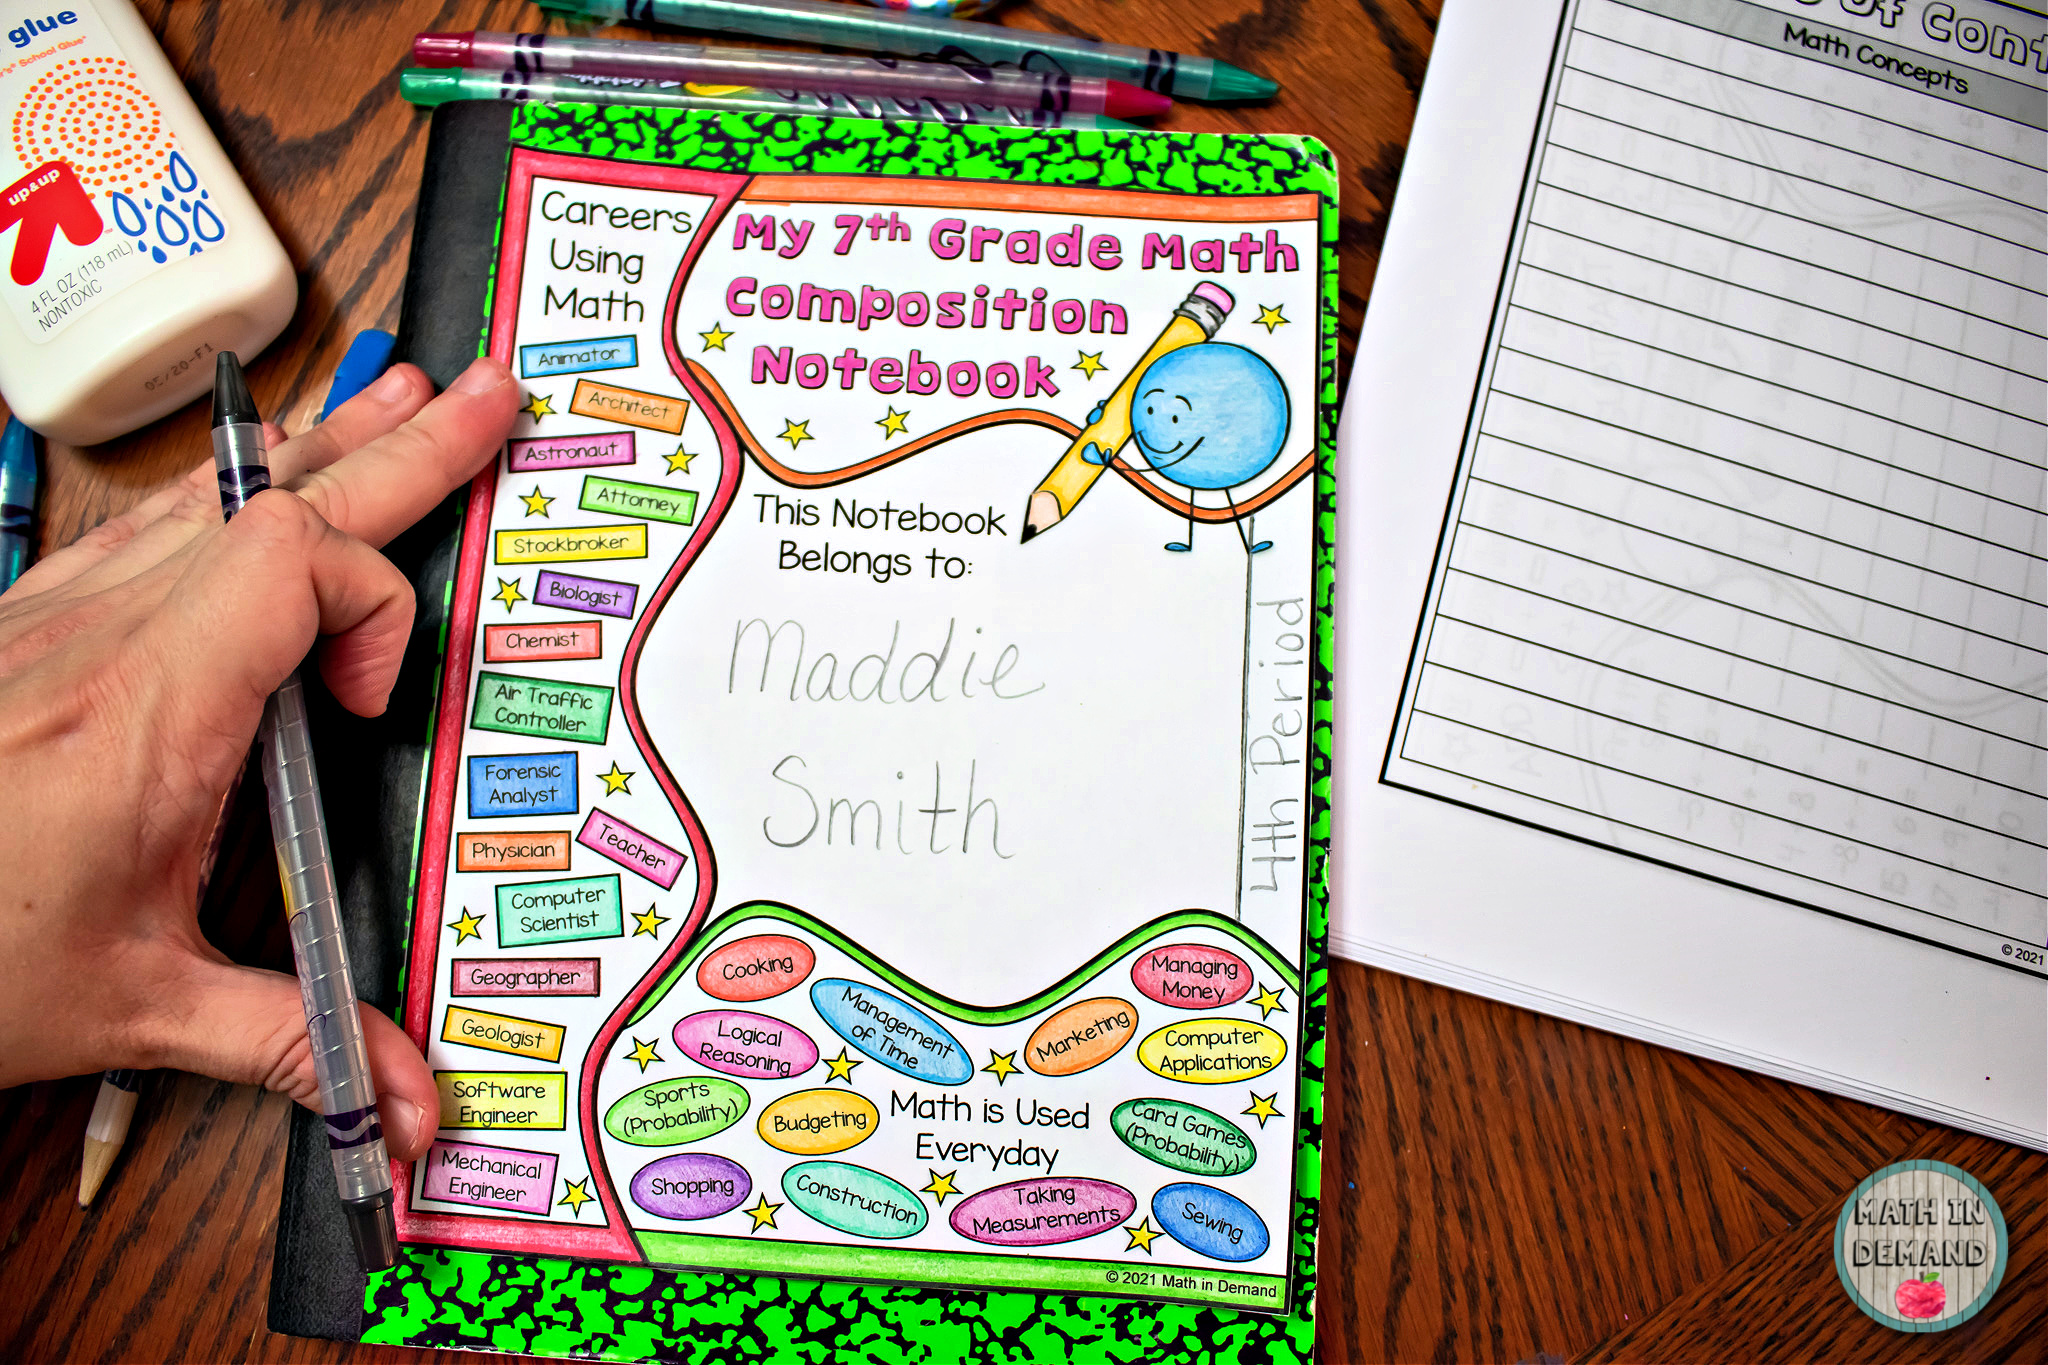 glue
School Glue
up&up
4 FL OZ (118 mL)
NONTOXIC
Careers
Using
Math
Animator
Architect
Astronaut
Attorney
Stockbroker
Biologist
Chemist
Air Traffic
Controller
Forensic
Analyst
Physician
Teacher
Computer
Scientist
Geographer
Geologist
Software
Engineer
Mechanical
Engineer
My 7th Grade Math
Composition
Notebook
This Notebook
Belongs to:
Maddie
Smith
4th Period
Cooking
Management
of Time
Logical
Reasoning
Marketing
Managing
Money
Computer
Applications
Sports
(Probability)
Budgeting
Math is Used
Everyday
Card Games
(Probability)
Shopping
Construction
Taking
Measurements
Sewing
© 2021 Math in Demand
of Cont
Math Concepts
© 2021
MATH IN
DEMAND